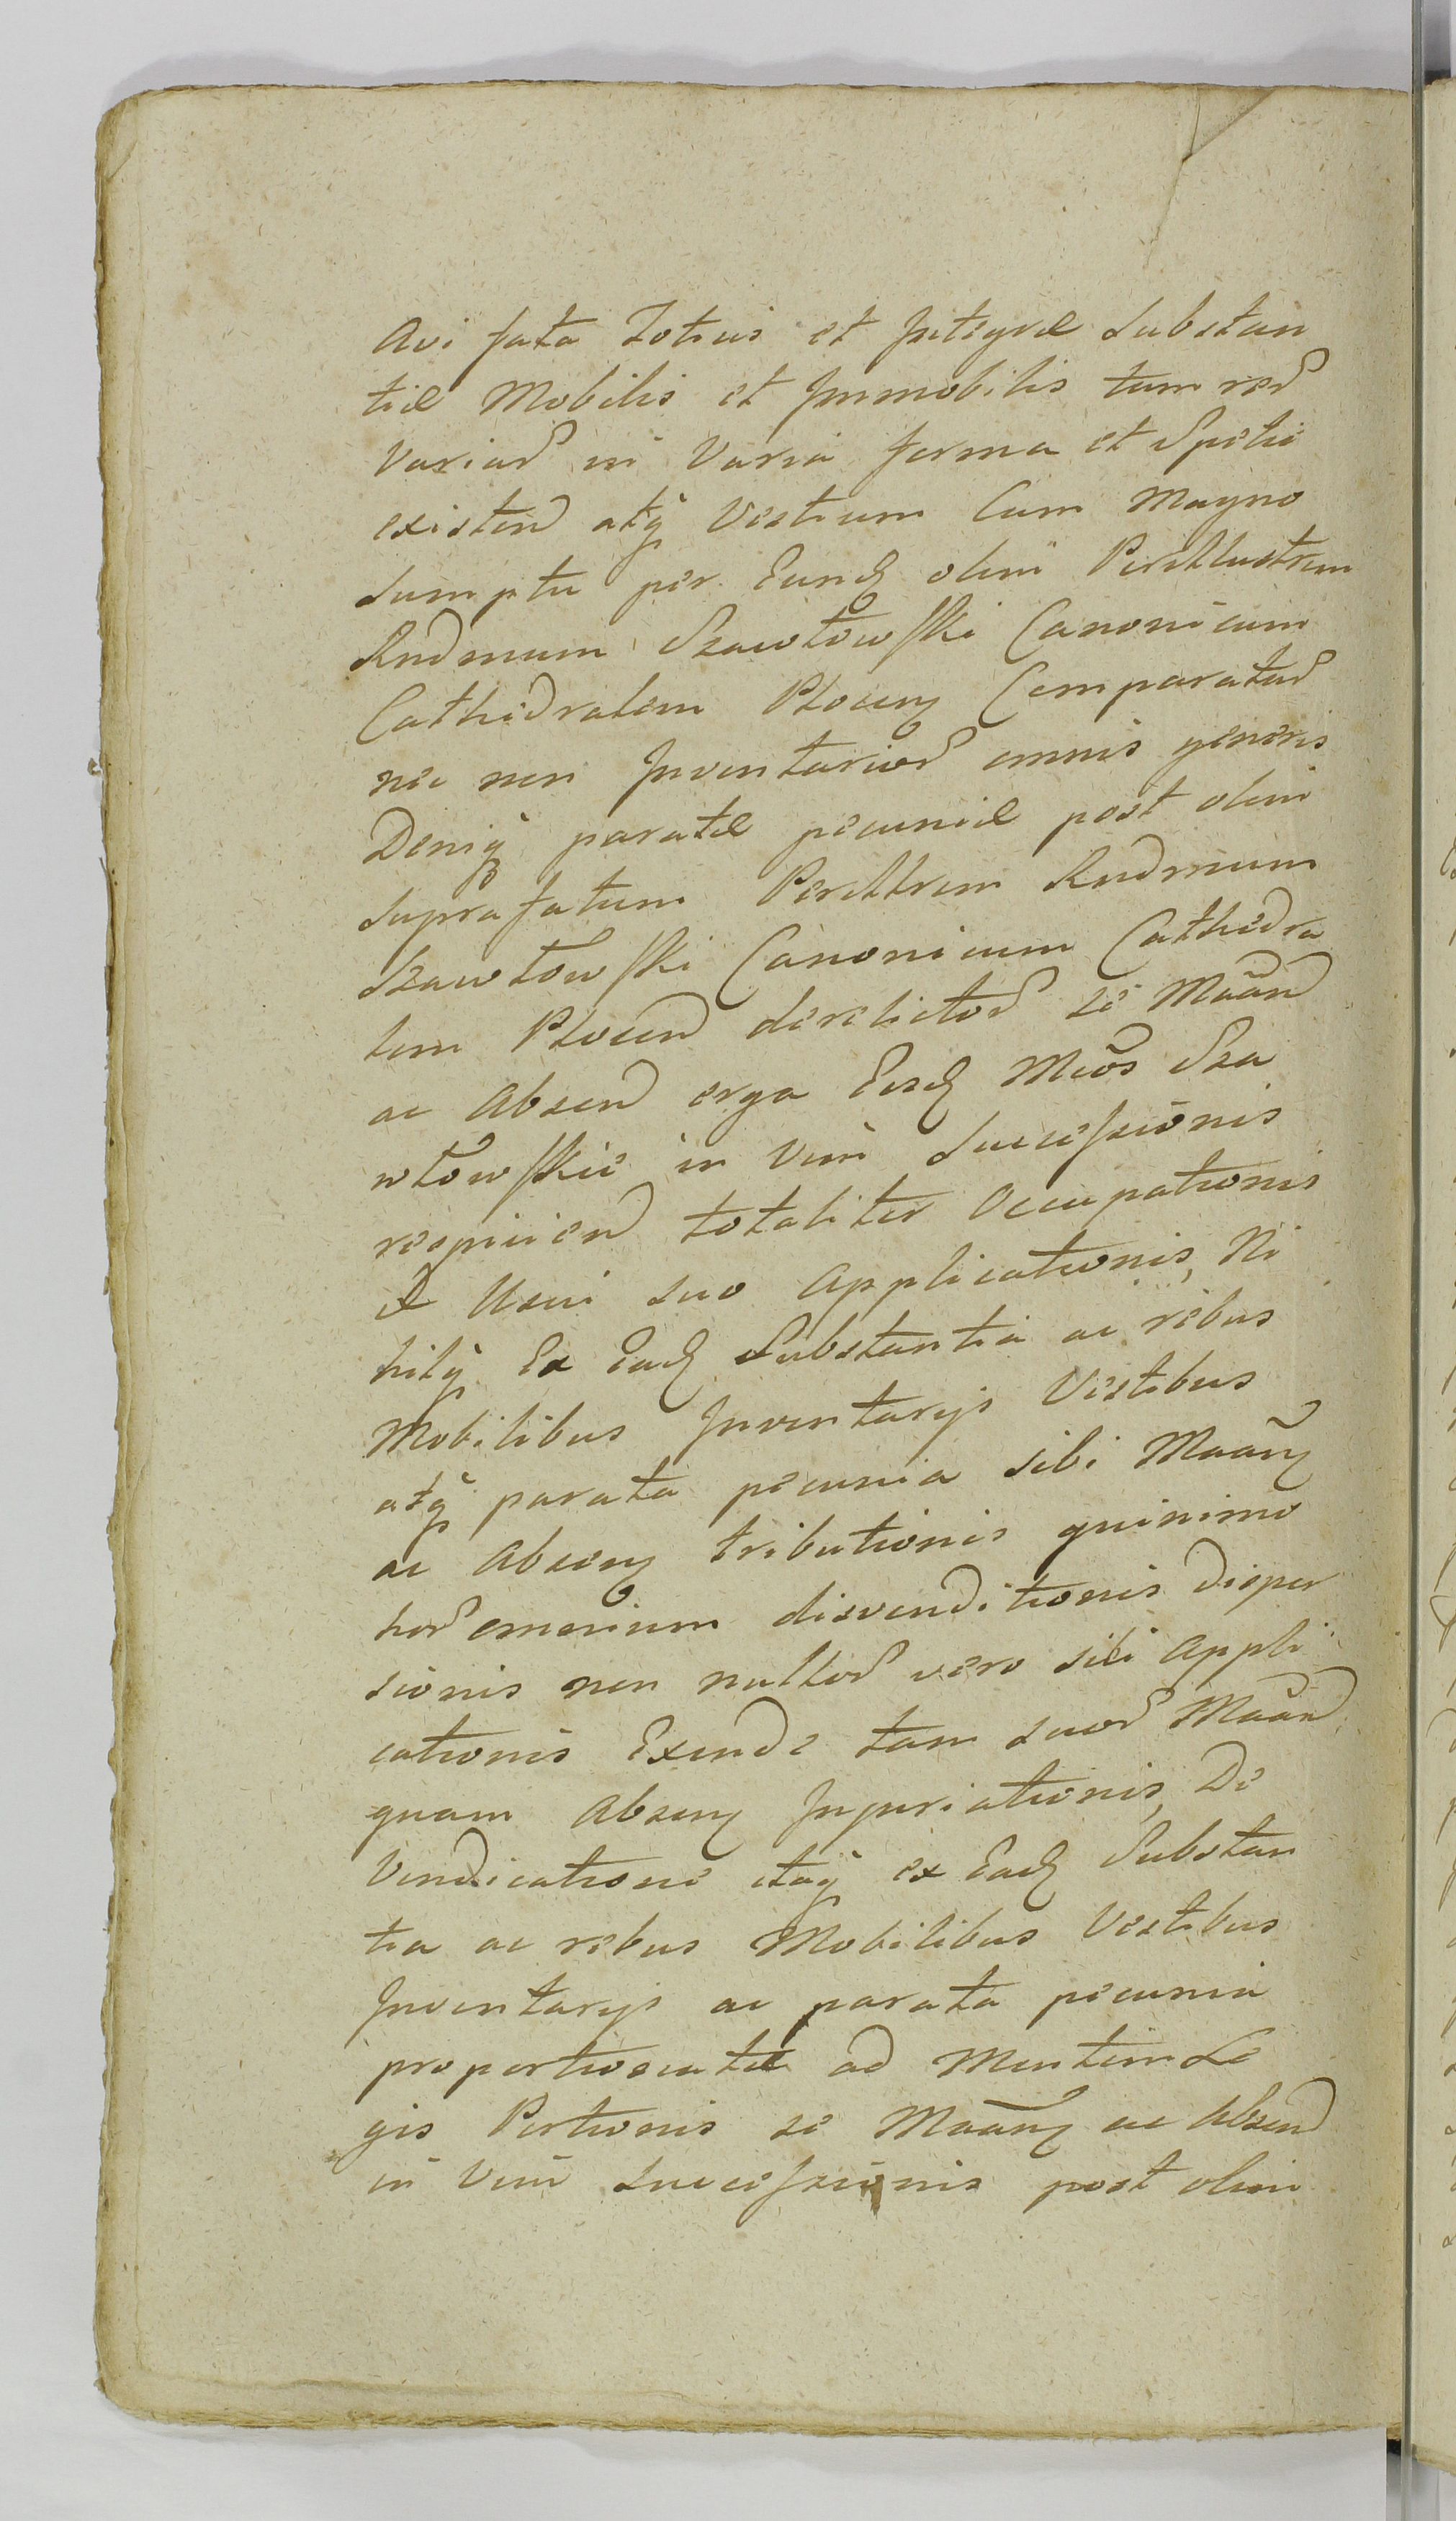 avi fata Totius et Integræ Substan
tiæ Mobilis et Immobilis tum reꝝ
Variaꝝ in Varia forma et Specie
existenꝺ atq̃ Vestium Cum Magno
Sumptu per Eunꝺ olim Perillustrem
Rndmum Szawłowski Canonicum
Cathedralem Plocen Comparataꝝ
nec non Inventarioꝝ omnis generis
Deniq̃ paratæ pecuniæ post olim
Suprafatum Perillrem Rndmum
Szawłowski Canonicum Cathedra
lem Plocen derelictoꝝ se Māān
ac Absen erga Eosꝺ Mcōs Sza
włowskie in Vim Successionis
respicien totaliter Occupationis
et Usui suo applicationis, Ni
hilq̃ Ex Eaꝺ Substantia ac rebus
Mobilibus Inventarijs Vestibus
atq̃ parata pecunia sibi Māān
ac Absen tributionis quinimo
hoꝝ omnium disvenditionis disper
sionis non nulloꝝ vero sibi appli
cationis Exinde tam suoꝝ Māān
quam Absen Injuriationis, De
Vendicatione itaq̃ ex Eaꝺ Substan
tia ac rebus Mobilibus Vestibus
Inventarijs ac parata pecunia
proportionatæ ad Mentem Le
gis Portionis se Māān ac Absen
in Vim Successionis post olim